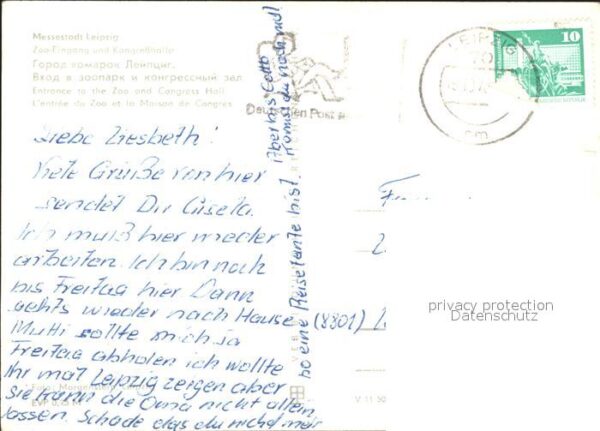 Messestadt Leipzig
Zoo-Eingang und Kongreßhalle
Город ярмарок Лейпциг.
Вход в зоопарк и конгрессный зал
Entrance to the Zoo and Congress Hall
L'entrée du Zoo et la Maison de Congrès
Liebe Liesbeth!
Viele Grüße von hier
sendet Dir Gisela.
Ich muß hier wieder
arbeiten. Ich bin noch
bis Freitag hier. Dann
gehts wieder nach Hause (8801)
Mutti sollte mich ja
Freitag abholen ich wollte
Ihr mal Leipzig zeigen aber
sie kann die Oma nicht allein
lassen. Schade das du nicht mehr
so eine Reisetante bist.
Aber bis
kommst du noch mal
Foto:
EVP 0,15 M
V 11 50
Deutschen Post
LEIPZIG
10
privacy protection
Datenschutz